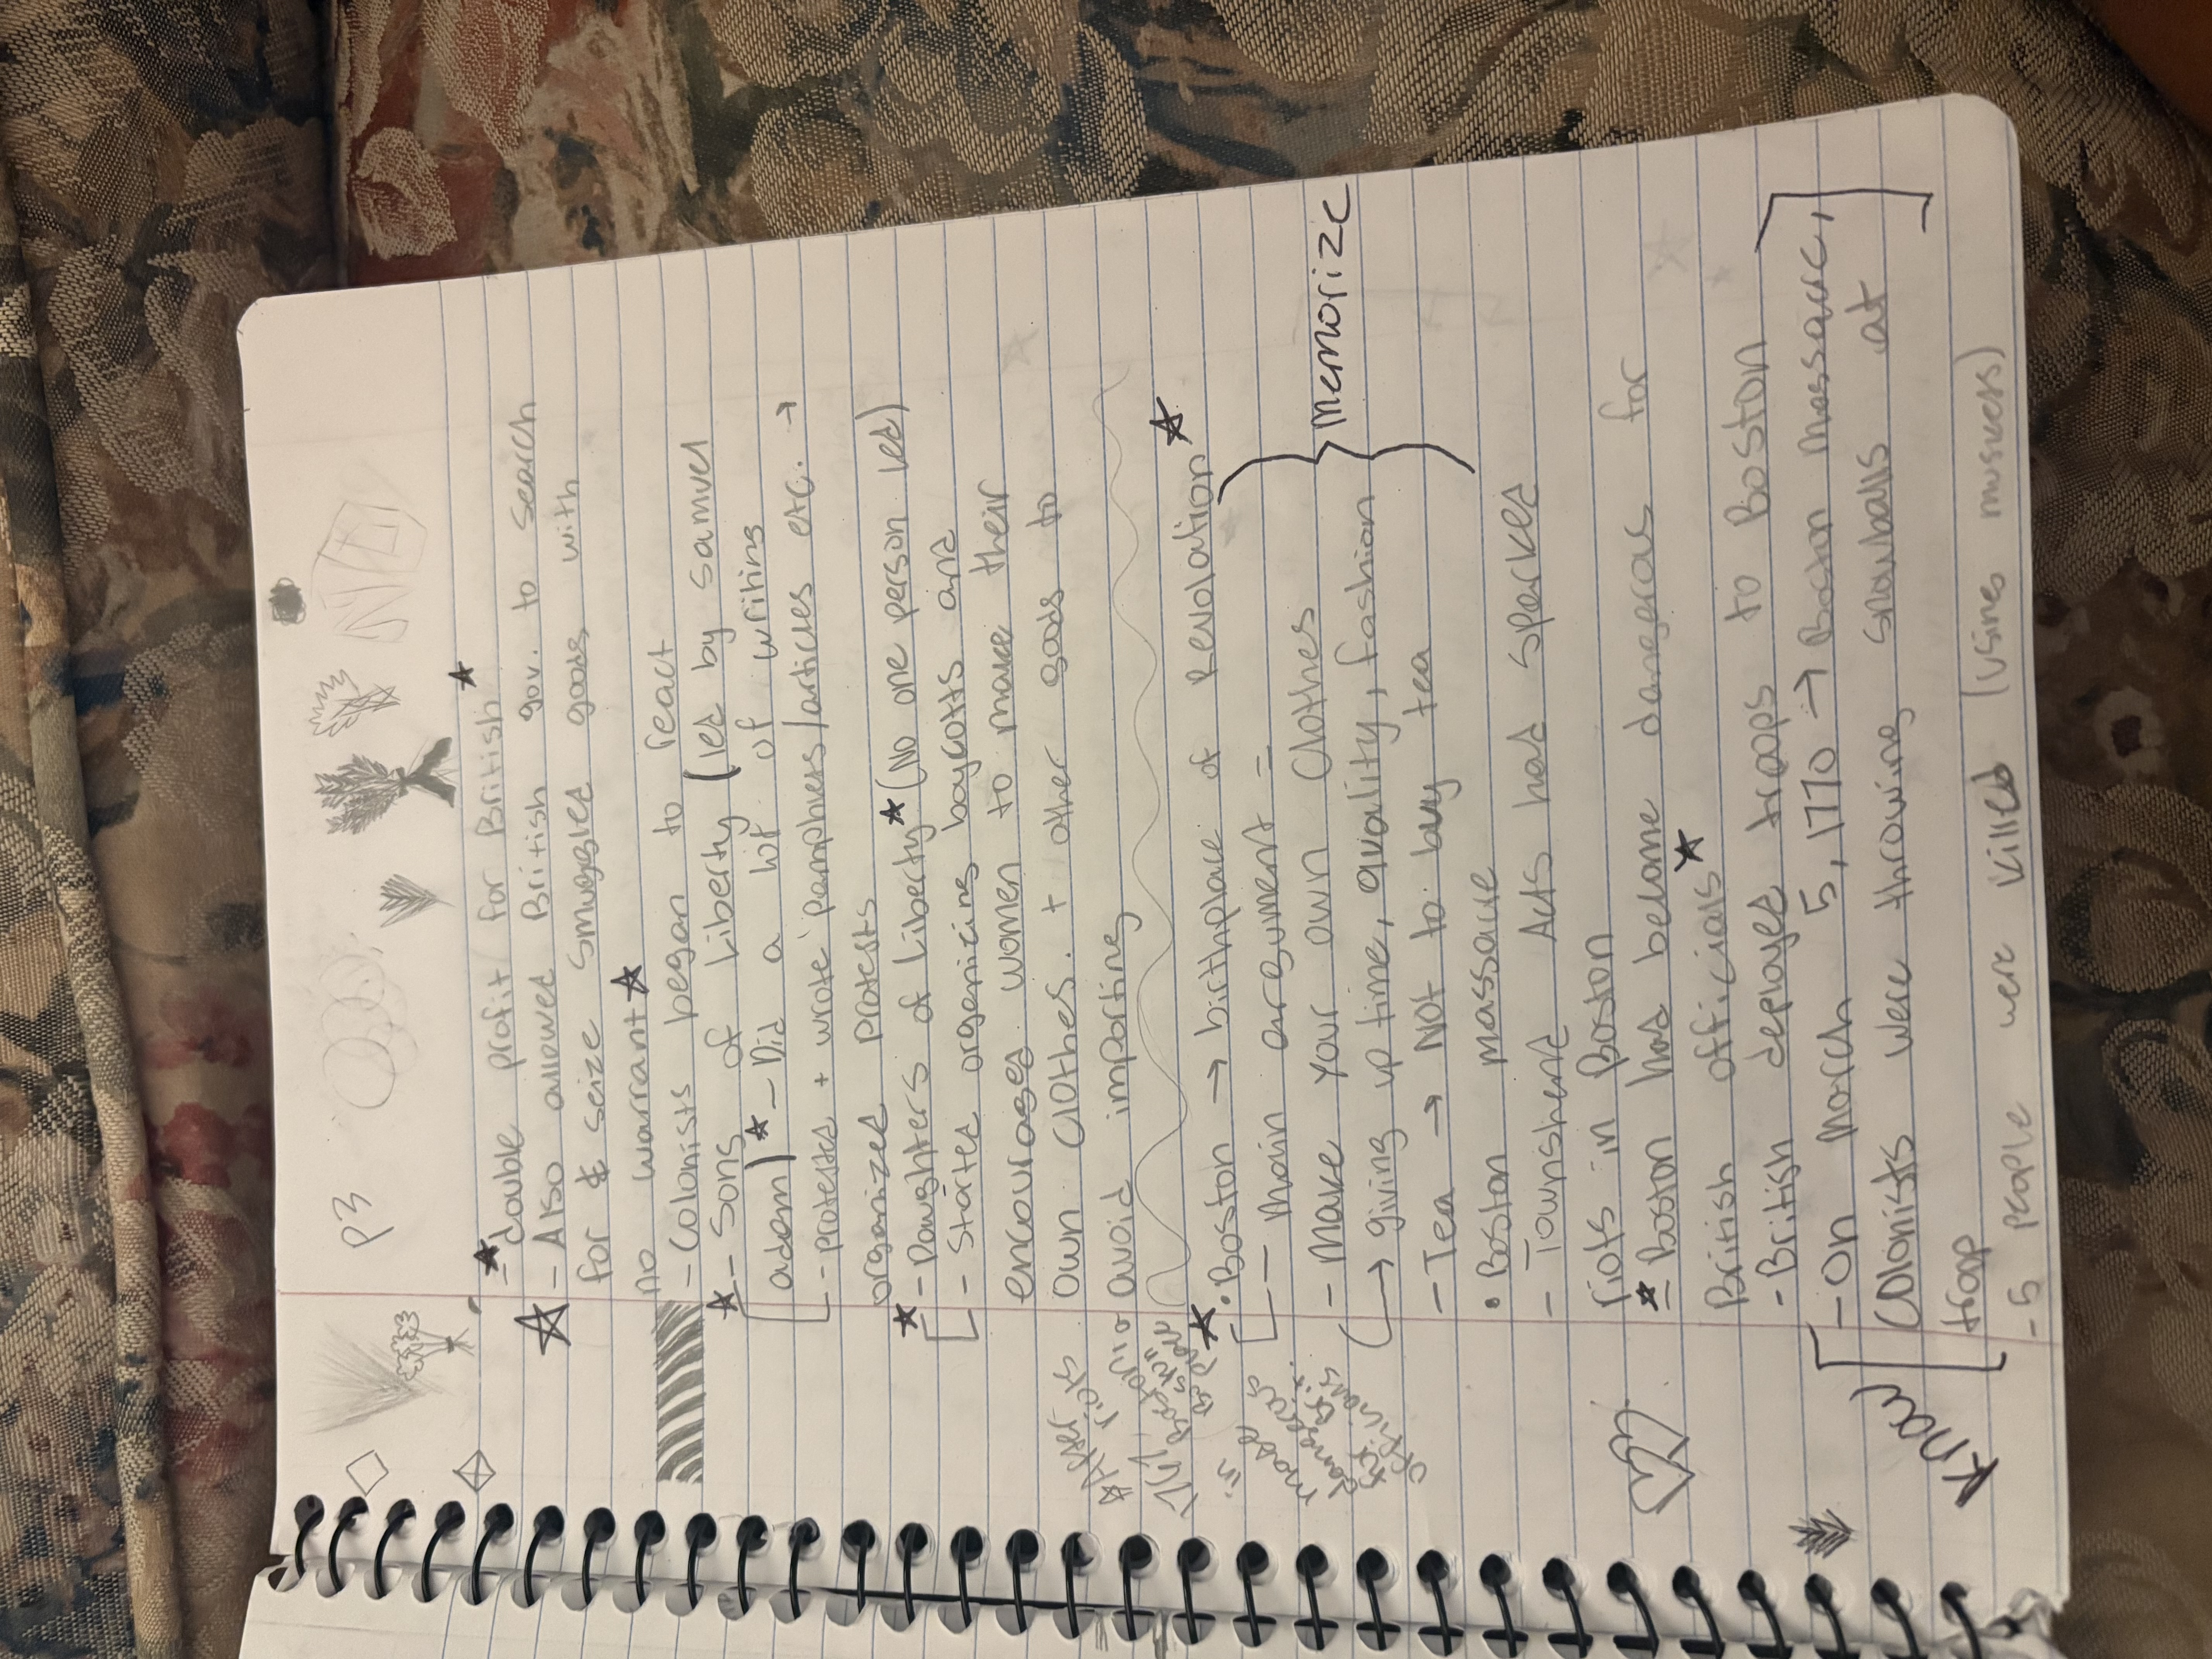 P3
- double profit for British
- Also allowed British gov. to search
for & seize smuggled goods with
no warrant
- Colonists began to react
- Sons of Liberty (led by samuel
adem) - Did a lot of writing
- protested + wrote pamphlets/articles etc. →
organized protests
- Daughters of Liberty (No one person led)
- Started organizing boycotts and
encourages women to make their
own clothes. + other goods to
avoid importing
• Boston → birthplace of Revolution
- main argument =
- Make your own clothes
→ giving up time, quality, fashion
- Tea → NOT to buy tea
Memorize
• Boston massacre
- Townshend Acts had sparked
riots in Boston
- Boston had become dangeras for
British officials
- British deployed troops to Boston
- On March 5, 1770 → Boston massacre,
Colonists were throwing snowballs at
troop
Know
- 5 people were killed (using muskets)
After
riots
in
made
dangeras
for
officials